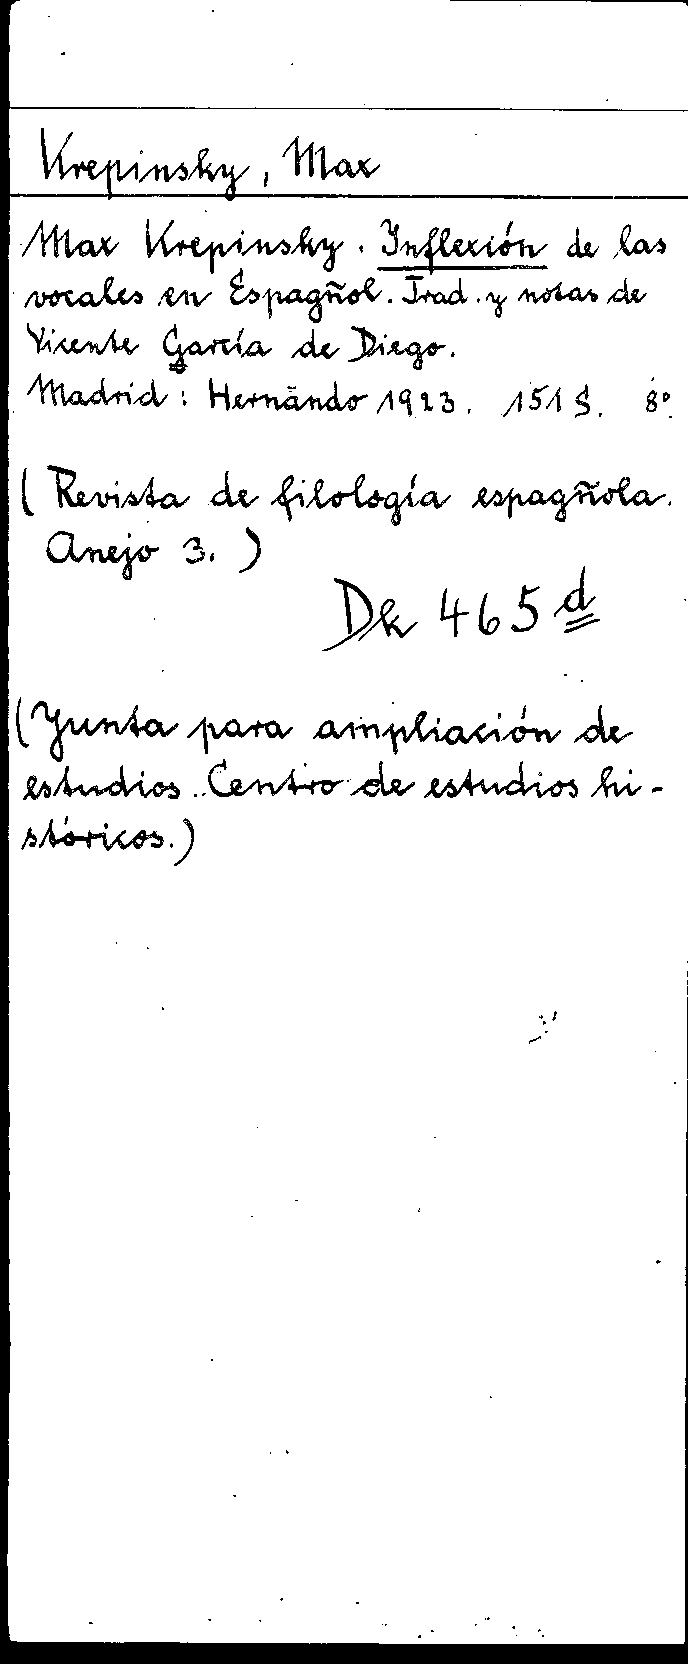 Krepinsky, Max
Max Krepinsky. Inflexión de las
vocales en Espagñol. Trad. y notas de
Vicente García de Diego.
Madrid: Hernándo 1923. 151 S. 8°
(Revista de filología espagñola.
Anejo 3.)
Dk 465 d
(Junta para ampliación de
estudios. Centro de estudios hi-
stóricos.)